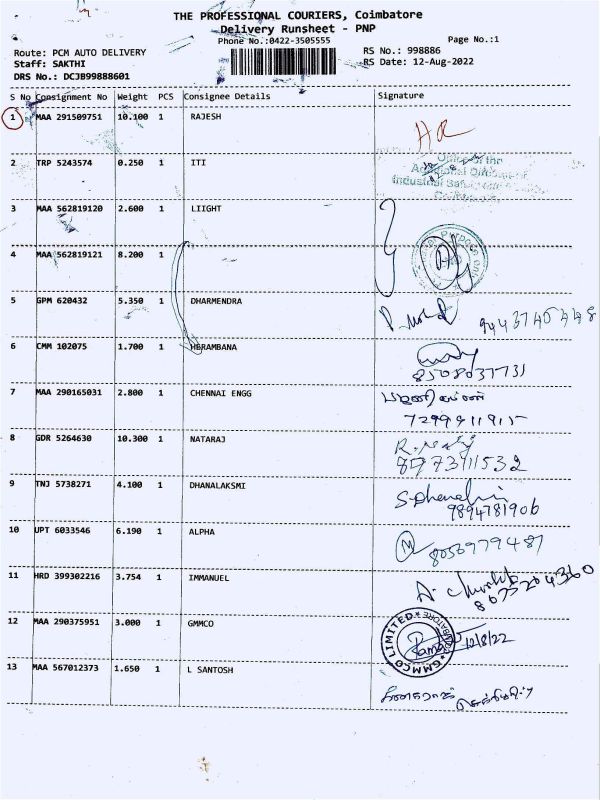 THE PROFESSIONAL COURIERS, Coimbatore
Delivery Runsheet - PNP
Phone No.:0422-3505555
Page No.:1
Route: PCM AUTO DELIVERY
RS No.: 998886
Staff: SAKTHI
RS Date: 12-Aug-2022
DRS No.: DCJB99888601
S No Consignment No Weight PCS Consignee Details Signature
1 MAA 291509751 10.100 1 RAJESH
2 TRP 5243574 0.250 1 ITI
Office of the
Industrial
3 MAA 562819120 2.600 1 LIIGHT
4 MAA 562819121 8.200 1
5 GPM 620432 5.350 1 DHARMENDRA
9443745448
6 CMM 102075 1.700 1 HERAMBANA
8508037731
7 MAA 290165031 2.800 1 CHENNAI ENGG
8 GDR 5264630 10.300 1 NATARAJ
9 TNJ 5738271 4.100 1 DHANALAKSMI
9894781906
10 UPT 6033546 6.190 1 ALPHA
8056979487
11 HRD 399302216 3.754 1 IMMANUEL
12 MAA 290375951 3.000 1 GMMCO
GMMCO LIMITED
12/8/22
13 MAA 567012373 1.650 1 L SANTOSH